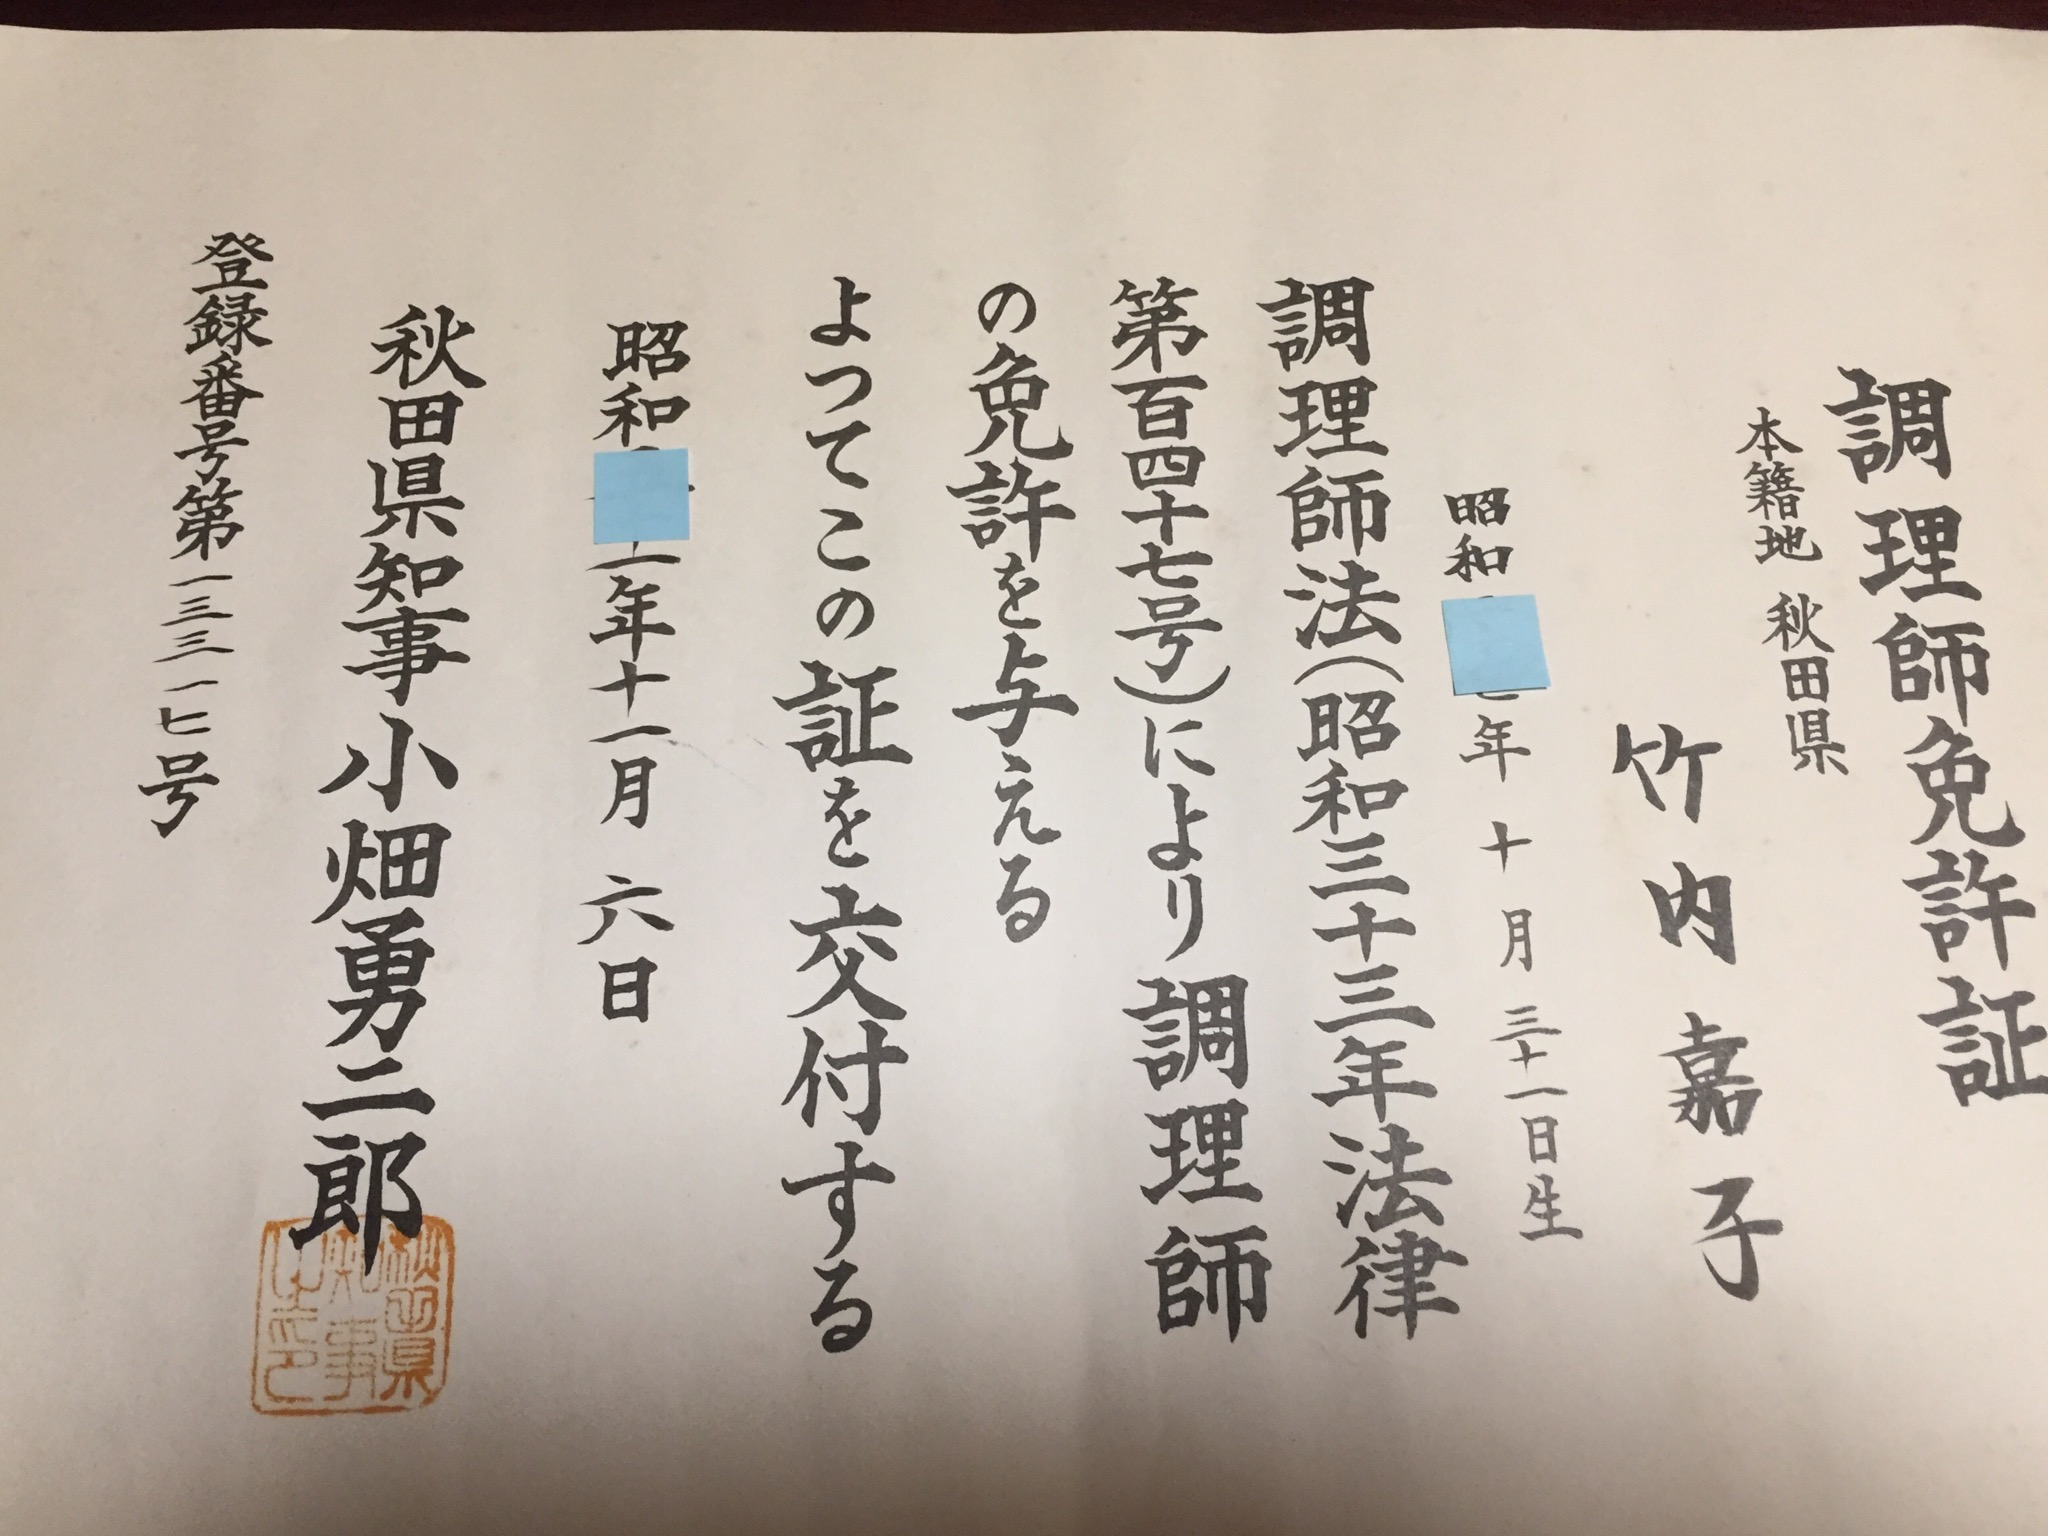 調理師免許証
本籍地 秋田県
竹内嘉子
昭和 年十月三十一日生
調理師法(昭和三十三年法律
第百四十七号)により調理師
の免許を与える
よつてこの証を交付する
昭和 年十一月六日
秋田県知事小畑勇二郎
秋田県知事之印
登録番号第一三三一七号